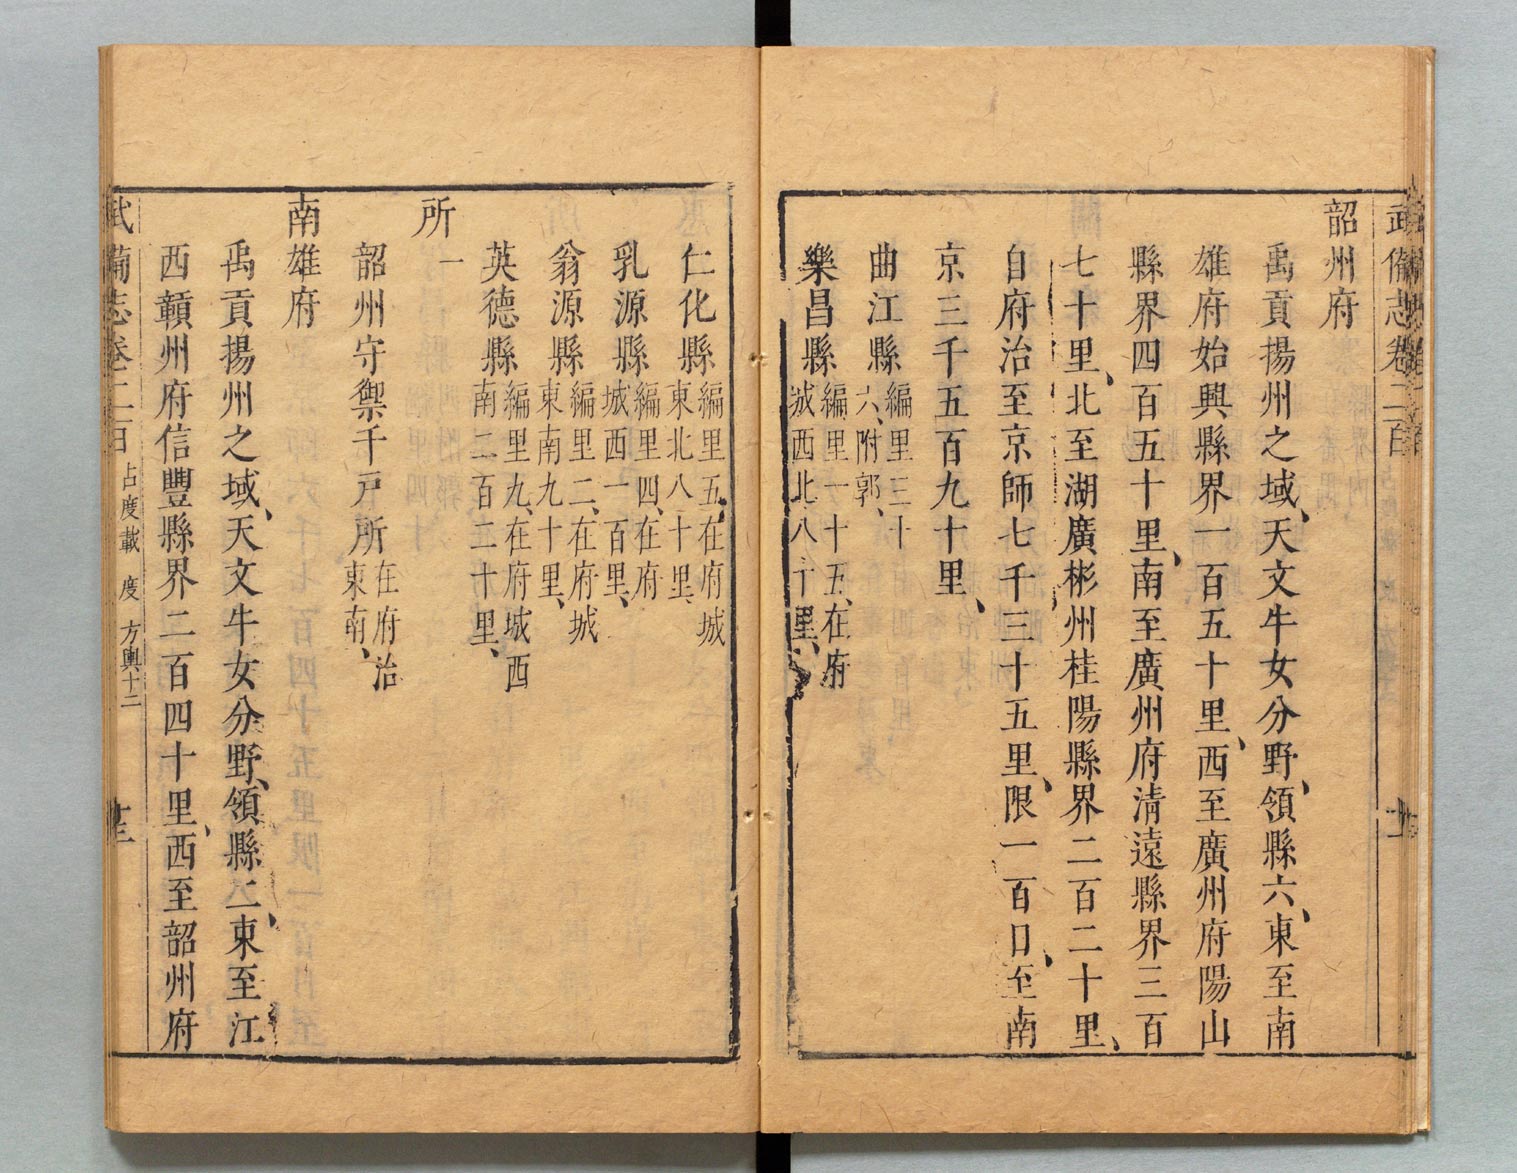 武備志卷二百
韶州府
禹貢揚州之域、天文牛女分野、領縣六、東至南
雄府始興縣界一百五十里、西至廣州府陽山
縣界四百五十里、南至廣州府清遠縣界三百
七十里、北至湖廣彬州桂陽縣界二百二十里、
自府治至京師七千三十五里、限一百日、至南
京三千五百九十里、
曲江縣編里三十
六、附郭、
樂昌縣編里一十五、在府
城西北八十里、
仁化縣編里五、在府城
東北八十里、
乳源縣編里四、在府
城西一百里、
翁源縣編里二、在府城
東南九十里、
英德縣編里九、在府城西
南二百二十里、
所一
韶州守禦千戶所在府治
東南、
南雄府
禹貢揚州之域、天文牛女分野、領縣二、東至江
西贛州府信豐縣界二百四十里、西至韶州府
武備志卷二百 占度載 度 方輿十二 十三